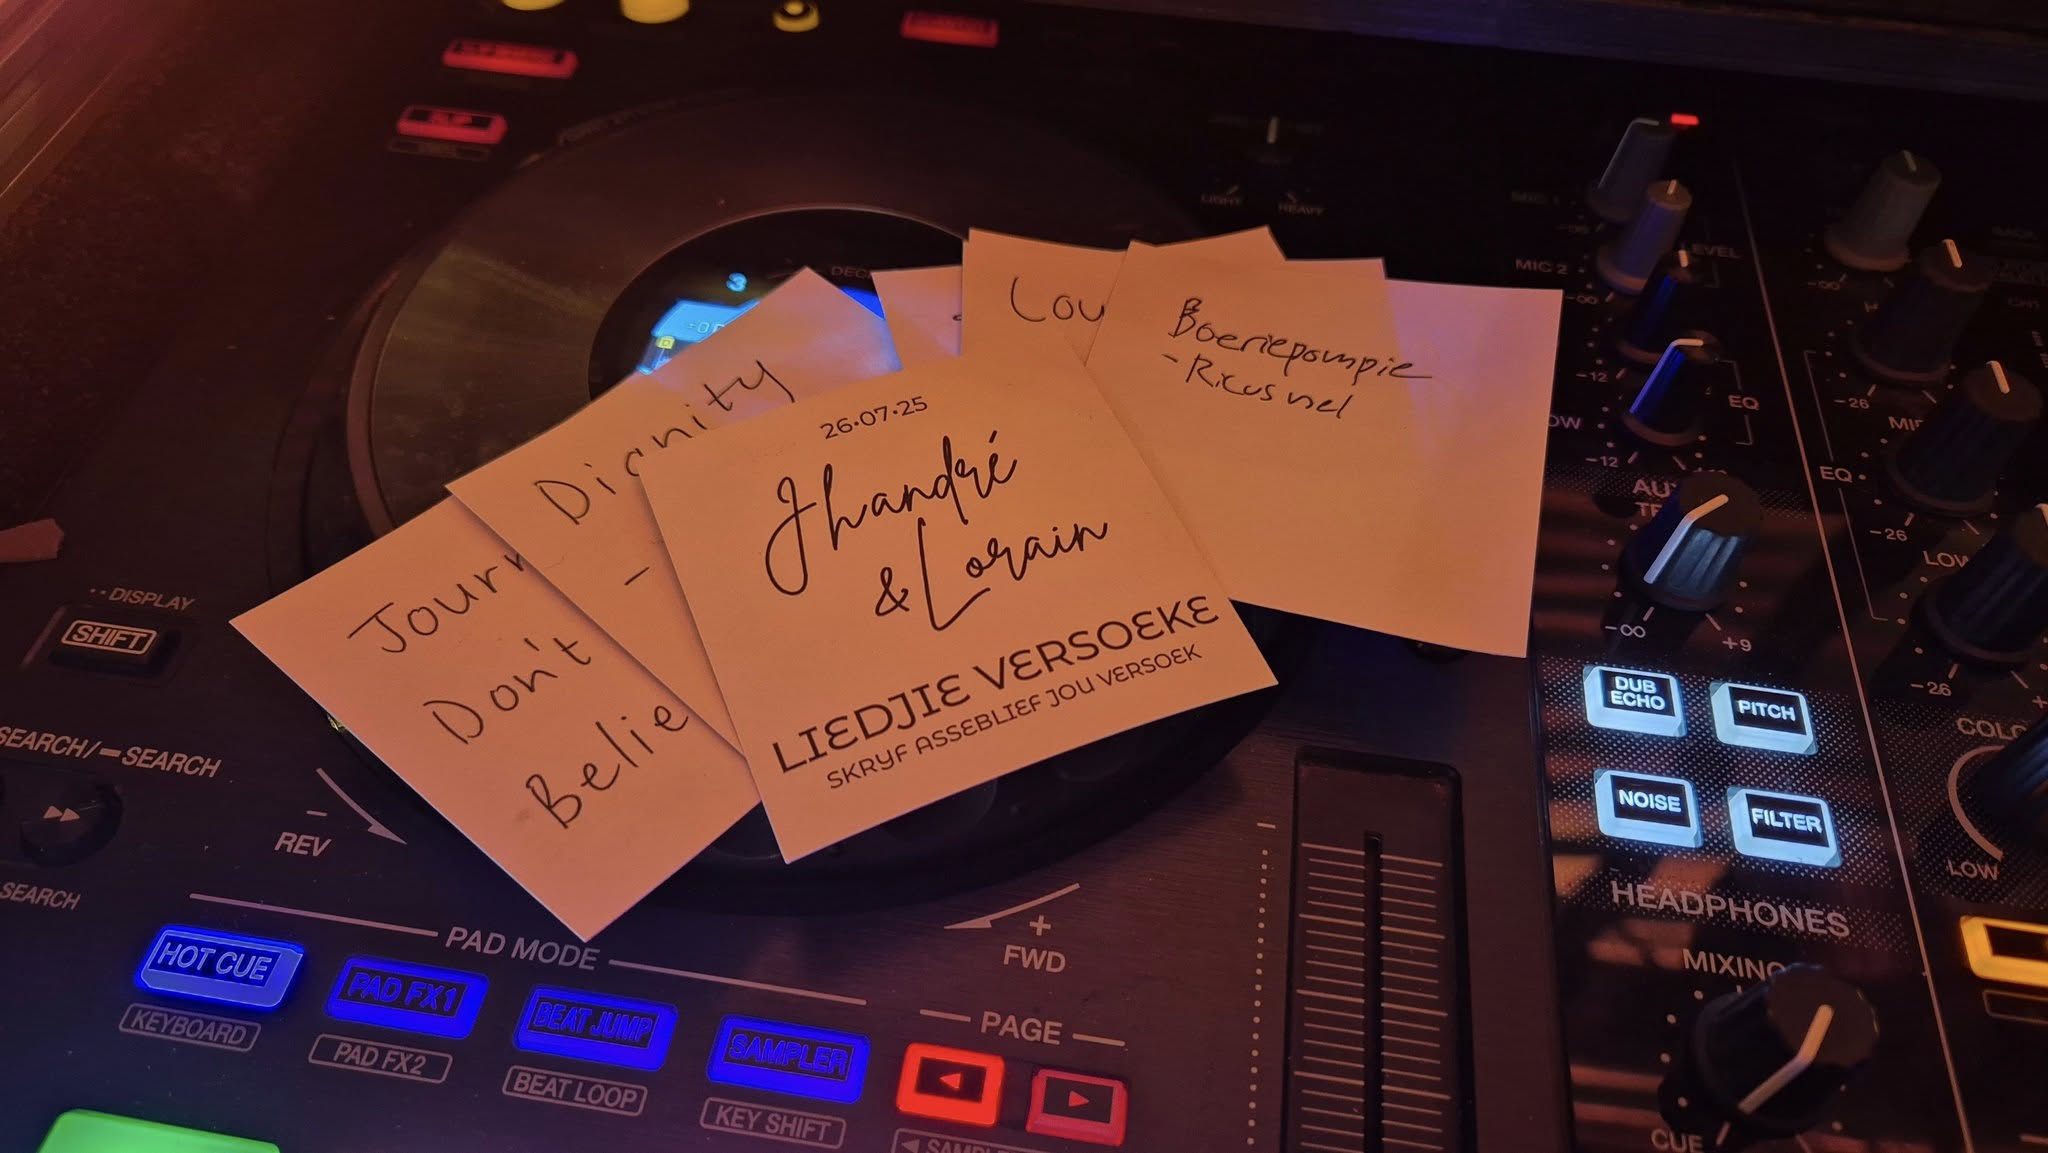 26·07·25
Jhandré
& Lorain
LIEDJIE VERSOEKE
SKRYF ASSEBLIEF JOU VERSOEK
Journ
Don't
Belie
Dignity
-
Lou
Boeriepompie
- Ricus nel
3
DEC
LIGHT
HEAVY
MIC 1
MIC 2
LEVEL
-∞
-12
EQ
OW
-12
AU
TR
-∞
+9
-26
MI
EQ
-26
LOW
-26
COLO
LOW
DUB
ECHO
PITCH
NOISE
FILTER
HEADPHONES
MIXING
CUE
DISPLAY
SHIFT
SEARCH/
SEARCH
SEARCH
-
REV
+
FWD
PAD MODE
HOT CUE
PAD FX1
BEAT JUMP
SAMPLER
KEYBOARD
PAD FX2
BEAT LOOP
KEY SHIFT
PAGE
SAMPL